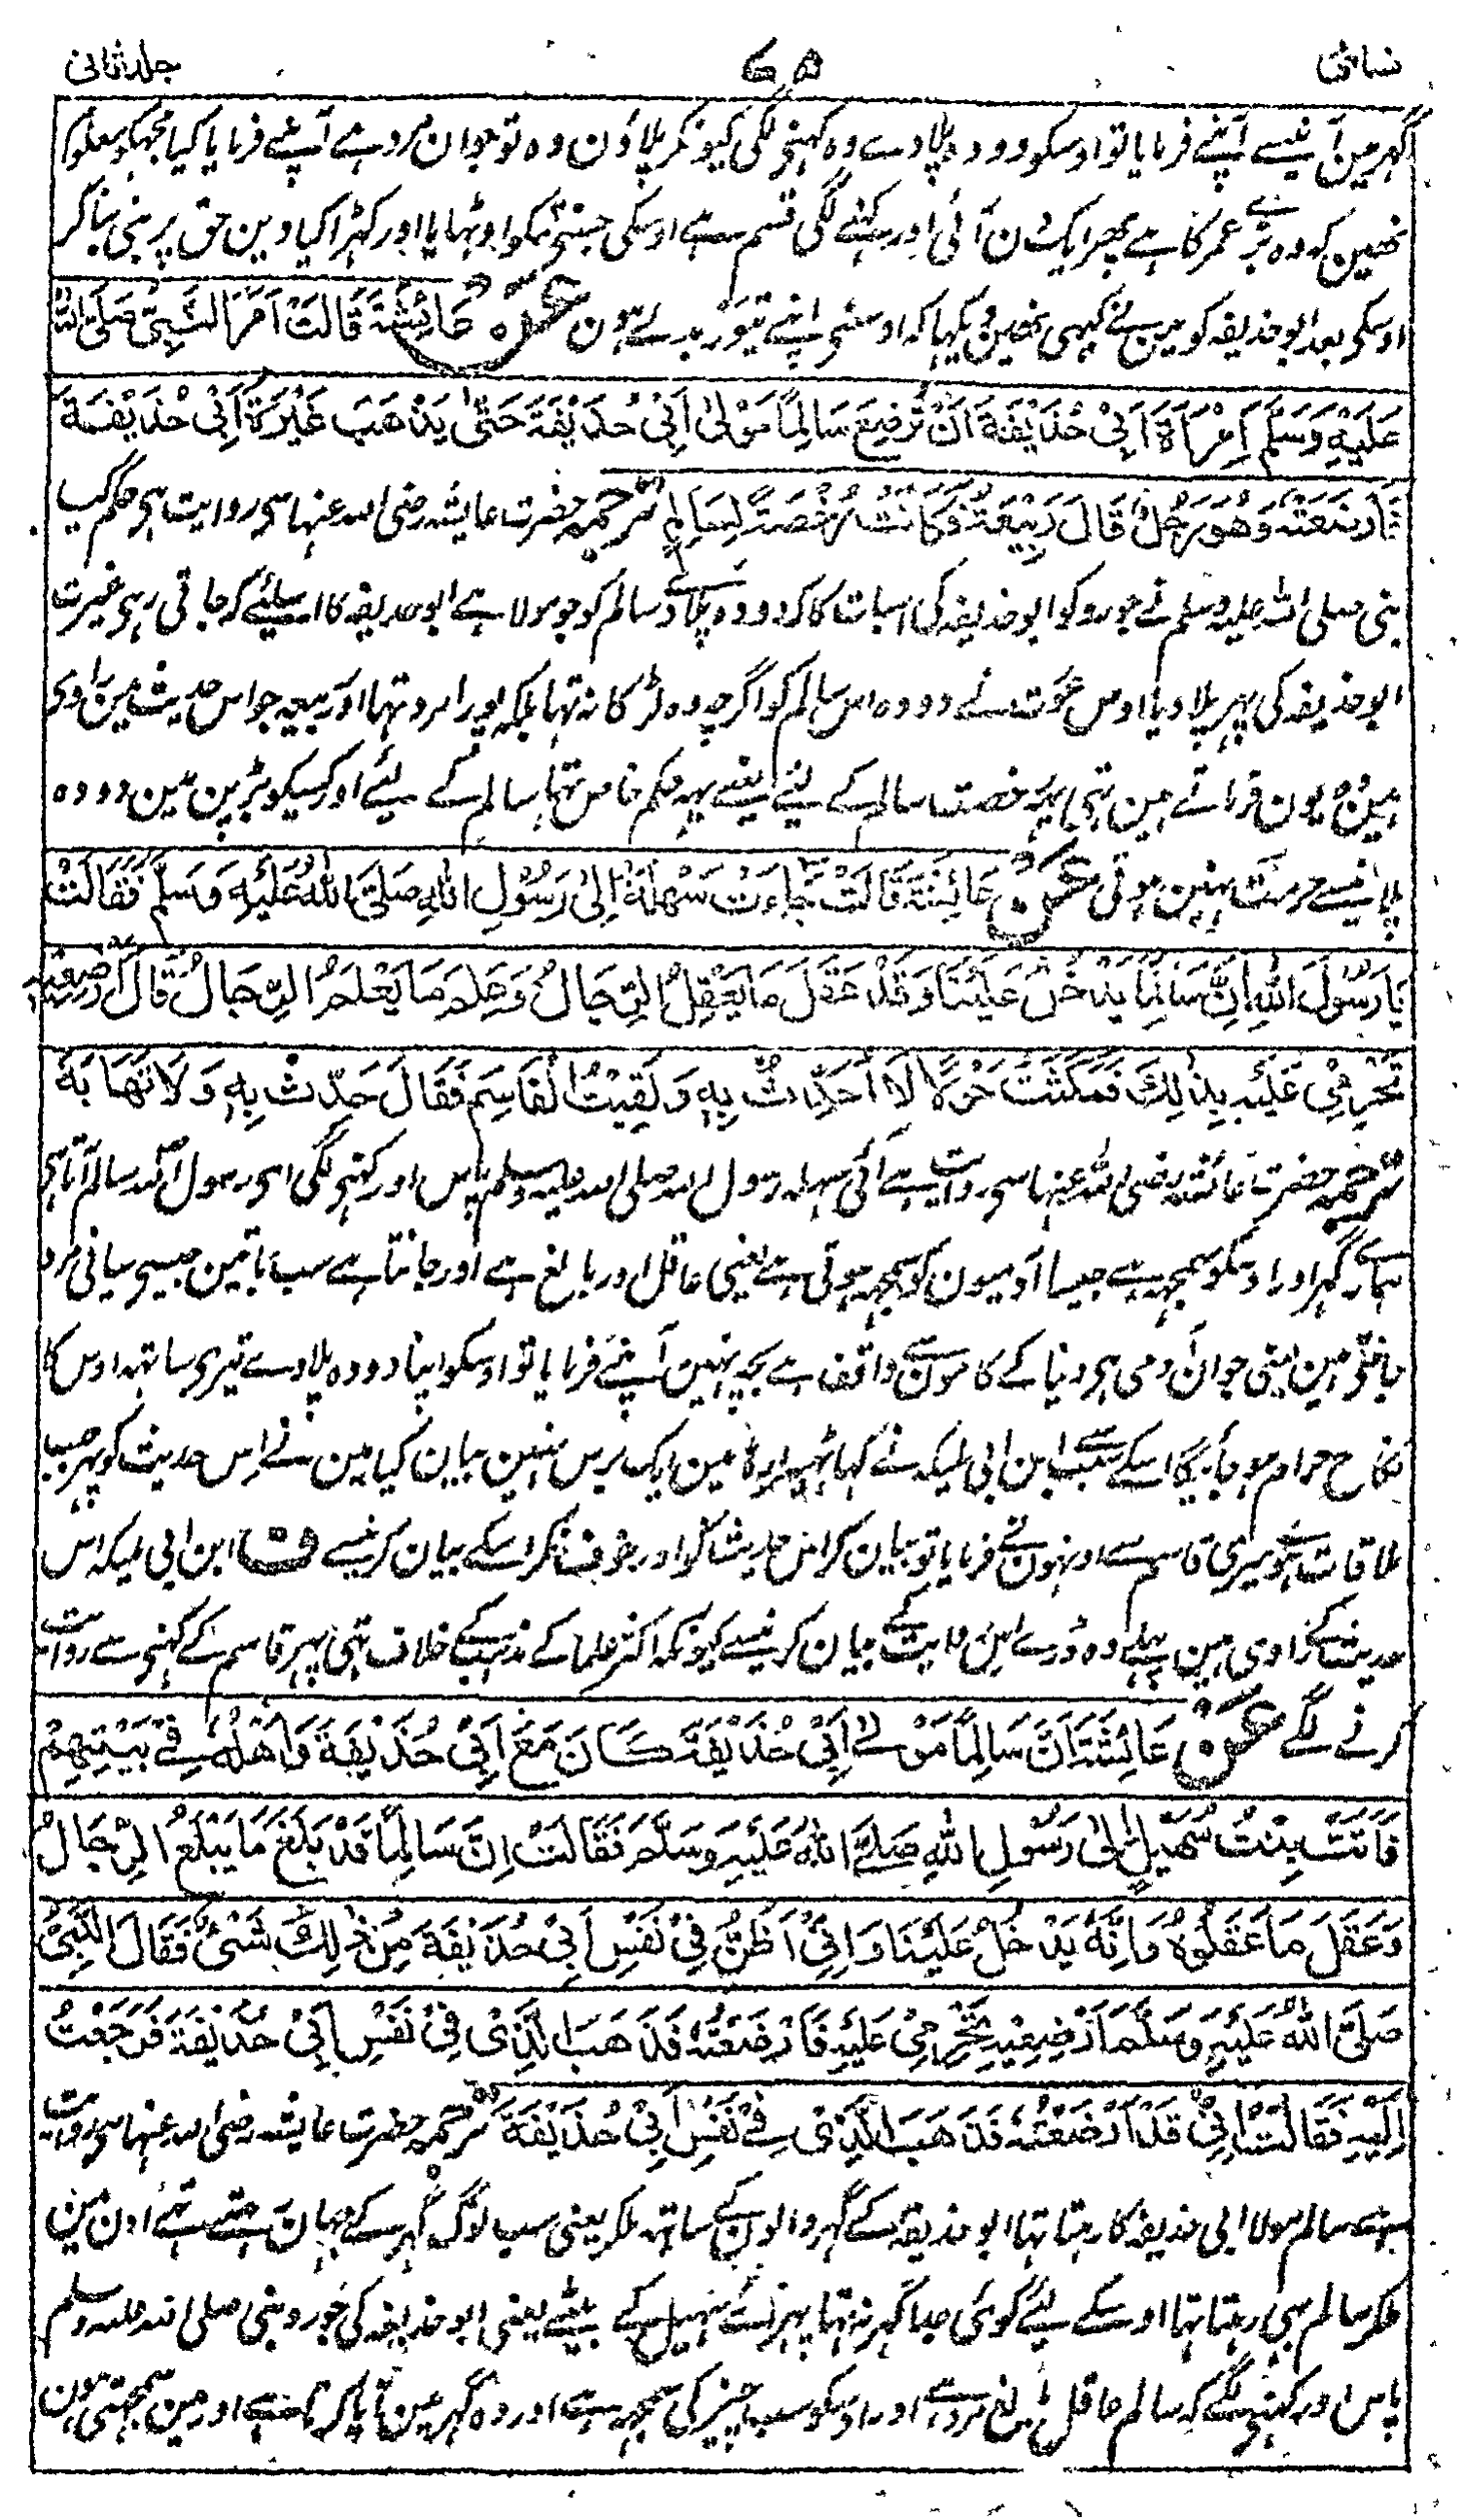 نسائی ۷۵ جلد ثانی
گہر مین آنیسے آپنے فرمایا تو اوسکو دودہ پلادے وہ کہنی لگی کیونکر پلاؤن وہ تو جوان مرد ہے آپنے فرمایا کیا مجہکو معلوم
نہین کہ وہ بڑے عمر کا ہے پھر ایک دن آئی اور کہنے لگی قسم ہے اوسکی جسنے تمکو اوٹہایا اور کہڑا کیا دین حق پر نبی بنا کر
اوسکی بعد ابو حذیفہ کو مین نے کبہی نہین دیکہا کہ اوسنی اپنے تیور بدلے ہون عَنْ عَائِشَةَ قَالَتْ اَمَرَ النَّبِيُّ صَلَّى اللهُ
عَلَيْهِ وَسَلَّمَ اِمْرَاَةَ اَبِيْ حُذَيْفَةَ اَنْ تُرْضِعَ سَالِمًا مَوْلٰى اَبِيْ حُذَيْفَةَ حَتّٰى يَذْهَبَ غَيْرَةُ اَبِيْ حُذَيْفَةَ
فَاَرْضَعَتْهُ وَهُوَ رَجُلٌ قَالَ رَبِيْعَةُ فَكَانَتْ رُخْصَةً لِسَالِمٍ ترجمہ حضرت عایشہ رضی اللہ عنہا سی روایت ہی حکم کیا
نبی صلی اللہ علیہ وسلم نے جورو کو ابو حذیفہ کی اسبات کا کہ دودہ پلادے سالم کو جو مولا ہے ابو حذیفہ کا اسلیئے کہ جاتی رہی غیرت
ابو حذیفہ کی پہر پلا دیا اوس عورت نے دودہ اس سالم کو اگرچہ وہ لڑکا نہ تہا بلکہ پورا مرد تہا اور ربیعہ جو اس حدیث مین راوی
ہین وہ یون فرماتے ہین تہی یہ رخصت سالم کے لئیے یعنی یہہ حکم خاص تہا سالم کے لیئے اور کسیکو بڑپن مین دودہ
پلانیسے حرمت نہین ہوتی عَنْ عَائِشَةَ قَالَتْ جَاءَتْ سَهْلَةُ اِلٰى رَسُوْلِ اللهِ صَلَّى اللهُ عَلَيْهِ وَسَلَّمَ فَقَالَتْ
يَا رَسُوْلَ اللهِ اِنَّ سَالِمًا يَدْخُلُ عَلَيْنَا وَقَدْ عَقَلَ مَا يَعْقِلُ الرِّجَالُ وَعَلِمَ مَا يَعْلَمُ الرِّجَالُ قَالَ اَرْضِعِيْهِ
تَحْرِمِيْ عَلَيْهِ بِذٰلِكَ فَمَكَثْتُ حَوْلًا لَا اُحَدِّثُ بِهٖ وَلَقِيْتُ الْقَاسِمَ فَقَالَ حَدِّثْ بِهٖ وَلَا تَهَابَهُ
ترجمہ حضرت عائشہ رضی اللہ عنہا سی روایت ہے آئی سہلہ رسول اللہ صلی اللہ علیہ وسلم پاس اور کہنی لگی ای رسول اللہ سالم آتا ہی
ہمارے گہر اور اوسکو سمجہہ ہے جیسا آدمیون کو سمجہہ ہوتی ہے یعنی عاقل اور بالغ ہے اور جانتا ہے سب باتین جیسی سیانی مرد
جانتی ہین یعنی جوان آدمی ہی دنیا کے کامون سے واقف ہے بچہ نہین آپنے فرمایا تو اوسکو اپنا دودہ پلادے تیری ساتہہ اوس کا
نکاح حرام ہو جائیگا اسکے سبب ابن ابی ملیکہ نے کہا ٹہیرا رہا مین ایک برس نہین بیان کیا مین نے اس حدیث کو پہر جب
ملاقات ہوئی میری قاسم سے اونہون نے فرمایا تو بیان کر اس حدیث کو اور خوف نکر اسکے بیان کرنیسے ف ابن ابی ملیکہ اس
حدیث کے راوی ہین پہلے وہ ڈرے اس روایت کے بیان کرنیسے کیونکہ اکثر علما کے مذہب کے خلاف تہی پہر قاسم کے کہنی سے روایت
کرنے لگے عَنْ عَائِشَةَ اَنَّ سَالِمًا مَوْلٰى اَبِيْ حُذَيْفَةَ كَانَ مَعَ اَبِيْ حُذَيْفَةَ وَاَهْلِهٖ فِيْ بَيْتِهِمْ
فَاَتَتْ بِنْتُ سُهَيْلٍ اِلٰى رَسُوْلِ اللهِ صَلَّى اللهُ عَلَيْهِ وَسَلَّمَ فَقَالَتْ اِنَّ سَالِمًا قَدْ بَلَغَ مَا يَبْلَغُ الرِّجَالُ
وَعَقَلَ مَا عَقَلُوْهُ وَاِنَّهٗ يَدْخُلُ عَلَيْنَا وَاِنِّيْ اَظُنُّ فِيْ نَفْسِ اَبِيْ حُذَيْفَةَ مِنْ ذٰلِكَ شَيْئٌ فَقَالَ النَّبِيُّ
صَلَّى اللهُ عَلَيْهِ وَسَلَّمَ اَرْضِعِيْهِ تَحْرِمِيْ عَلَيْهِ فَاَرْضَعْتُهٗ فَذَهَبَ الَّذِيْ فِيْ نَفْسِ اَبِيْ حُذَيْفَةَ فَرَجَعْتُ
اِلَيْهِ فَقَالَتْ اِنِّيْ قَدْ اَرْضَعْتُهٗ فَذَهَبَ الَّذِيْ فِيْ نَفْسِ اَبِيْ حُذَيْفَةَ ترجمہ حضرت عایشہ رضی اللہ عنہا سی روایت
ہے سالم مولا ابی حذیفہ کا رہتا تہا ابو حذیفہ کے گہر والون کے ساتہہ ملکر یعنی سب لوگ گہر کے جہان رہتے تہے اون مین
ملکر سالم بہی رہتا تہا اوسکے لیئے کوئی جدا گہر نہ تہا پہر آئی سہیل کے بیٹے یعنی ابو حذیفہ کی جورو نبی صلی اللہ علیہ وسلم
پاس اور کہنی لگے کہ سالم عاقل بالغ مرد ہے اور اوسکو سب چیز کی سمجہہ ہے اور وہ گہر مین آیا کرتا ہے اور مین سمجہتی ہون